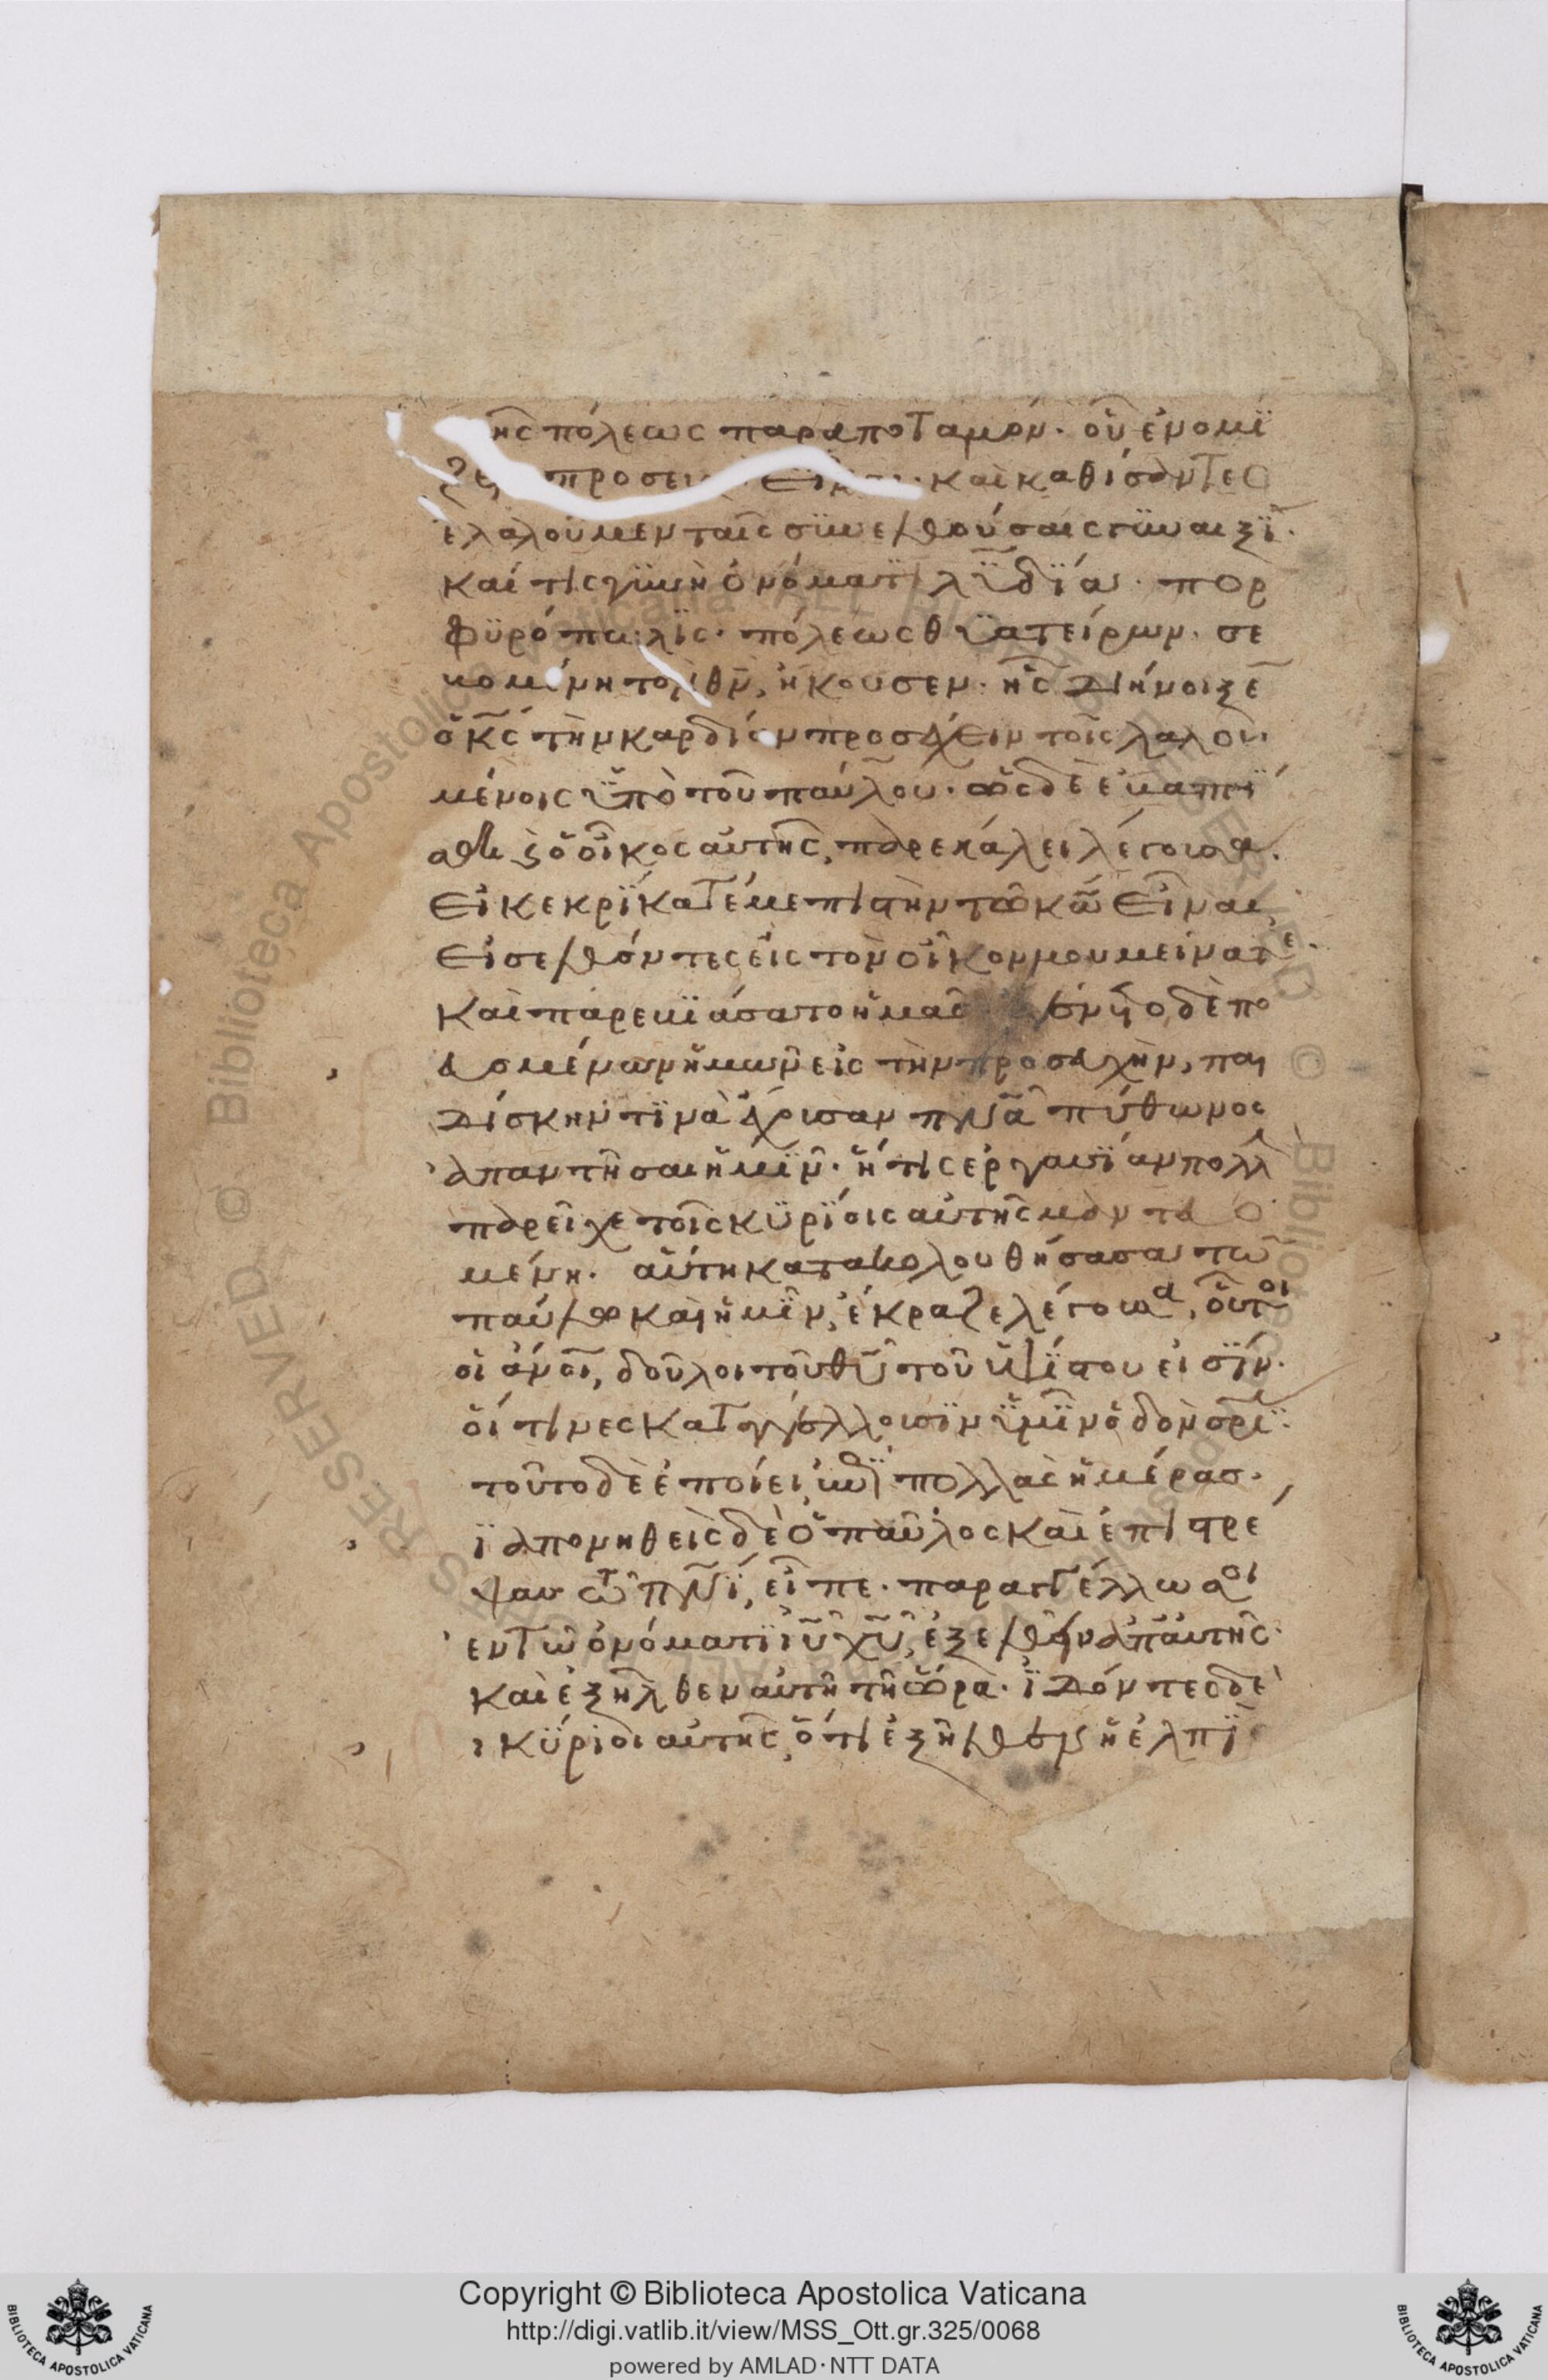 ῆς πόλεως παρα ποταμόν. οὗ ἐνομϊ
ζε προσευ εἶναι. καὶ καθίσαντες
ἐλαλοῦμεν ταῖς συνελθούσαις γυναιξΐ.
καί τις γυνὴ ὀνόματι λϋδΐα. πορ
φϋρόπωλϊς. πόλεως θϋατείρων. σε
βομένη τὸν θν, ἤκουσεν. ἧς διήνοιξε
ὁ κς τὴν καρδίαν προσέχειν τοῖς λαλου
μένοις ὑπὸ τοῦ παύλου. ὡς δὲ ἐβαπτί
σθη καὶ ὁ οἶκος αὐτῆς, παρεκάλει λέγουσα.
εἰ κεκρΐκατέ με πιστὴν τῶ κω εἶναι
εἰσελθόντες εἰς τὸν οἶκον μου μείνατε.
καὶ παρεβιάσατο ἡμᾶς. ἐγένετο δὲ πο
ρευομένων ἡμῶν εἰς τὴν προσευχὴν, παι
δίσκην τϊνὰ ἔχουσαν πνα πύθωνος
ἀπαντῆσαι ἡμῖν. ἥτις ἐργασΐαν πολλὴ
παρεῖχε τοῖς κϋρΐοις αὐτῆς μαντευο
μένη. αὕτη κατακολουθήσασα τῶ
παύλω καὶ ἡμῖν, ἔκραζε λέγουσα, οὗτοι
οἱ ἄνοι, δοῦλοι τοῦ θυ τοῦ ὑψΐστου εἰσΐν.
οἵτινες καταγγέλλουσϊν ὑμῖν ὁδὸν σρΐ.
τοῦτο δὲ ἐποίει ἐπὶ πολλὰς ἡμέρας.
ϊαπονηθεὶς δὲ ὁ παῦλος καὶ ἐπιστρε
ψας τῶ πνΐ, εἶπε. παραγγέλλω σοι
ἐν τῶ ὀνόματϊ ιυ χυ, ἐξελθεῖν ἀπ αὐτῆς.
καὶ ἐξῆλθεν αὐτῆ τῆ ὥρα. ϊδόντες δὲ
ι κΰριοι αὐτῆς, ὅτι ἐξῆλθεν ἡ ἐλπῒς
Copyright © Biblioteca Apostolica Vaticana
http://digi.vatlib.it/view/MSS_Ott.gr.325/0068
powered by AMLAD·NTT DATA